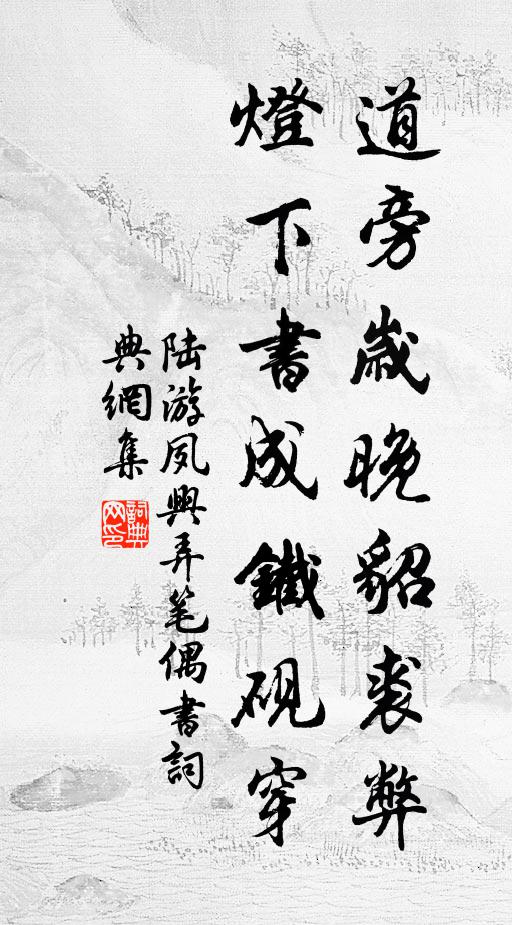 道旁歲晚貂裘弊
燈下書成鐵硯穿
陆游夙興弄笔偶書詞
典網集
詞典
网印